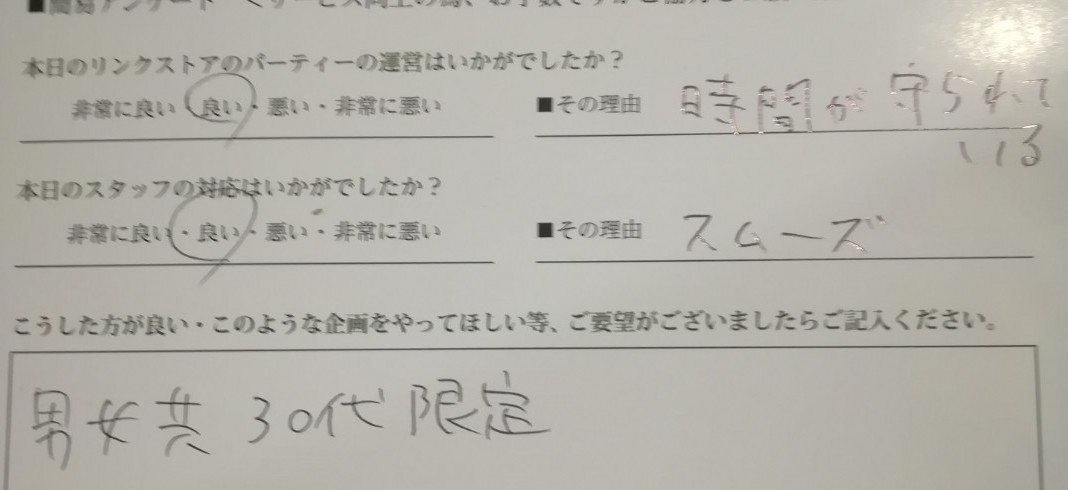 本日のリンクストアのパーティーの運営はいかがでしたか？
非常に良い・良い・悪い・非常に悪い ■その理由 時間が守られて
いる
本日のスタッフの対応はいかがでしたか？
非常に良い・良い・悪い・非常に悪い ■その理由 スムーズ
こうした方が良い・このような企画をやってほしい等、ご要望がございましたらご記入ください。
男女共 30代限定